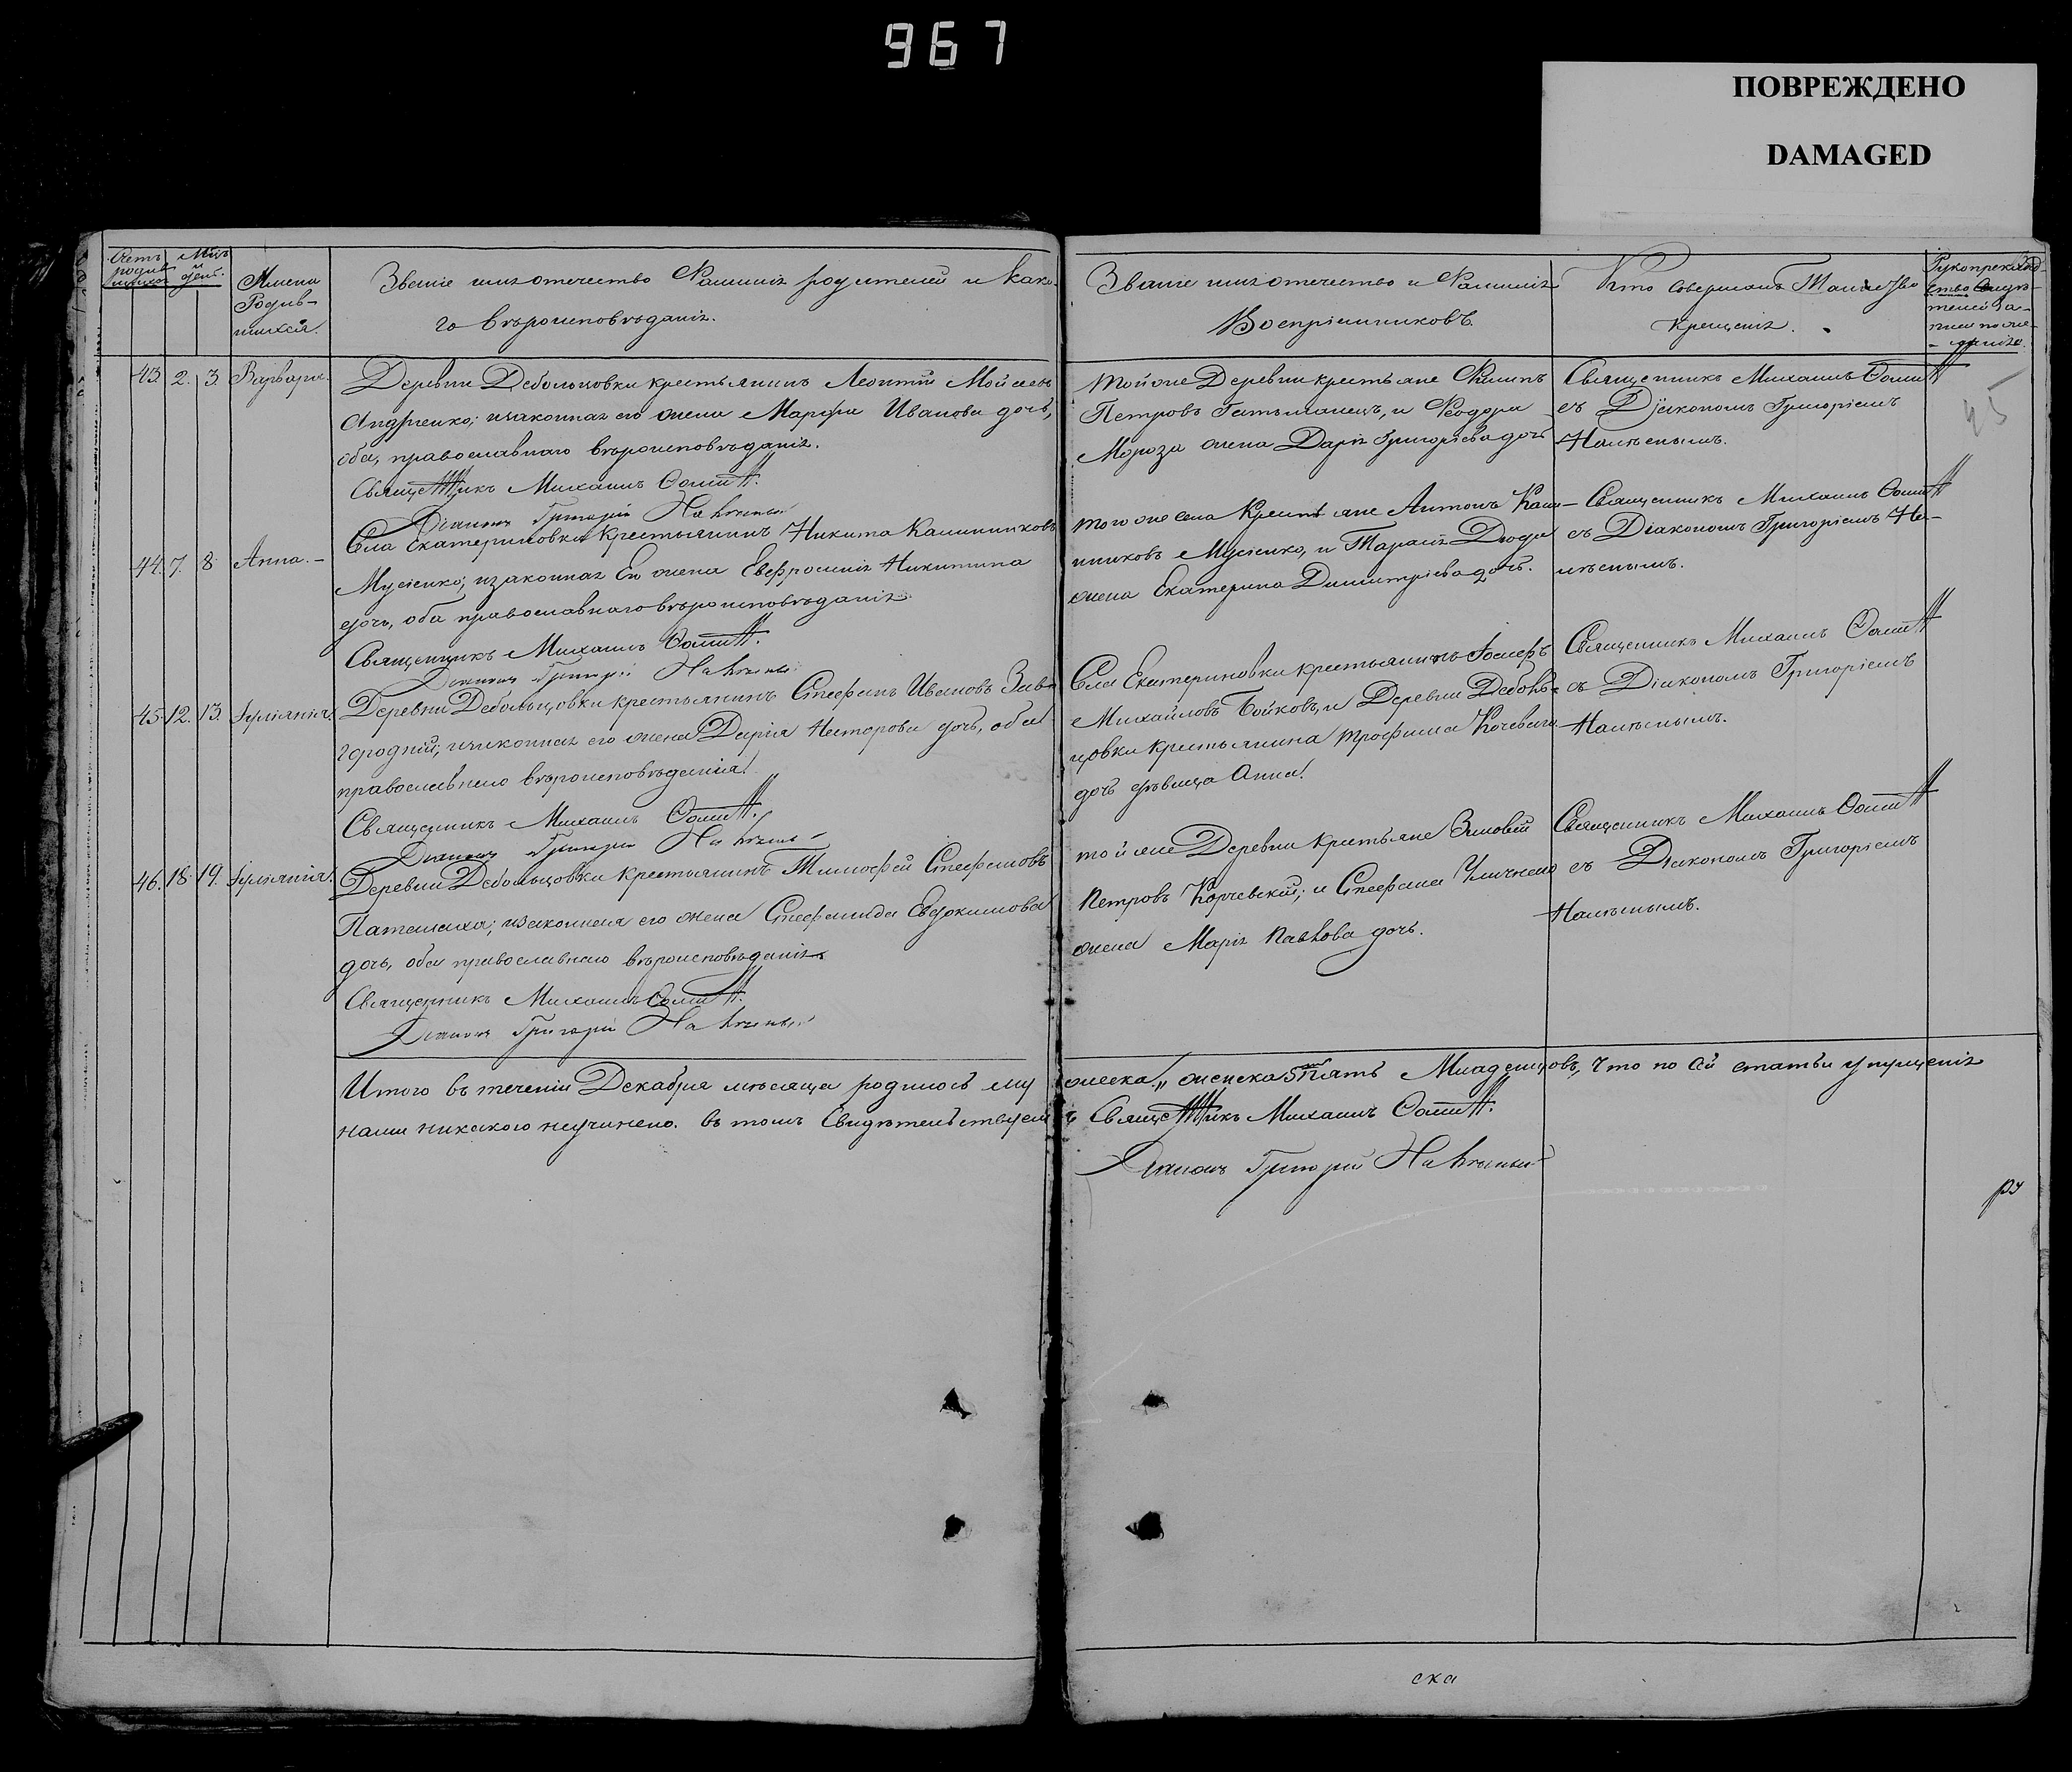 967
ПОВРЕЖДЕНО
DAMAGED
Счетъ
родив
шихся
Мцъ
и
день.
Имена
Родив-
шихся.
Званіе имя отечество и Фамилія родителей и како-
го вѣроисповѣданія.
Званіе имя отечество и Фамилія
Воспріимниковъ.
Кто совершалъ Таинство
крещенія.
43. 2. 3. Варвара.
Деревни Дебольцовки крестьянинъ Леонтій Мойсеевъ
Андріенко; изаконная его жена Марфа Иванова дочь,
оба, православнаго вѣроисповѣданія.
Священникъ Михаилъ
Діаконъ Григорій
тойже Деревни крестьяне Филипъ
Петровъ Гетьманецъ, и Феодора
Мороза жена Дарія Григоріева дочь
Священникъ Михаилъ
съ Діякономъ Григоріемъ
45
44. 7. 8. Анна.-
Села Екатериновки Крестьянинъ Никита Калинниковъ
Мусіенко; изаконная Его жена Евфросинія Никитина
дочь, оба православнаго вѣроисповѣданія
Священникъ Михаилъ
Діаконъ Григорій
тогоже села Крестьяне Антонъ Кали-
нниковъ Мусіенко, и Тарасія Дюда
жена Екатерина Димитріева дочь.
Священникъ Михаилъ
съ Діакономъ Григоріемъ
45. 12. 13. Іуліанія.
Деревни Дебольцовки крестьянинъ Стефанъ Ивановъ Заво
городній; изаконная его жена Дарія Несторова дочь, оба
православнаго вѣроисповѣданія.
Священникъ Михаилъ
Діаконъ Григорій
Села Екатериновки крестьянинъ Іосифъ
Михайловъ Бойковъ, и Деревни Деболь-
цовки крестьянина Трофима Кочеваго
дочь дѣвица Анна.
Священникъ Михаилъ
съ Діакономъ Григоріемъ
46. 18. 19. Іуліанія.
Деревни Дебольцовки крестьянинъ Тимофей Стефановъ
изаконная его жена Стефанида Евдокимова
дочь, оба православнаго вѣроисповѣданія.
Священникъ Михаилъ
Діаконъ Григорій
тойже Деревни крестьяне Зиновій
Петровъ Корчевскій; и Стефана
жена Марія Павлова дочь.
Священникъ Михаилъ
съ Діакономъ Григоріемъ
Итого въ теченіи Декабря мѣсяца родилось му жеска „ женска 5 пять Младенцовъ, Что по сей статьи упущенія
нами никакого неучинено. въ томъ Свидѣтельствуемъ Священникъ Михаилъ
Діаконъ Григорій
ру
ска